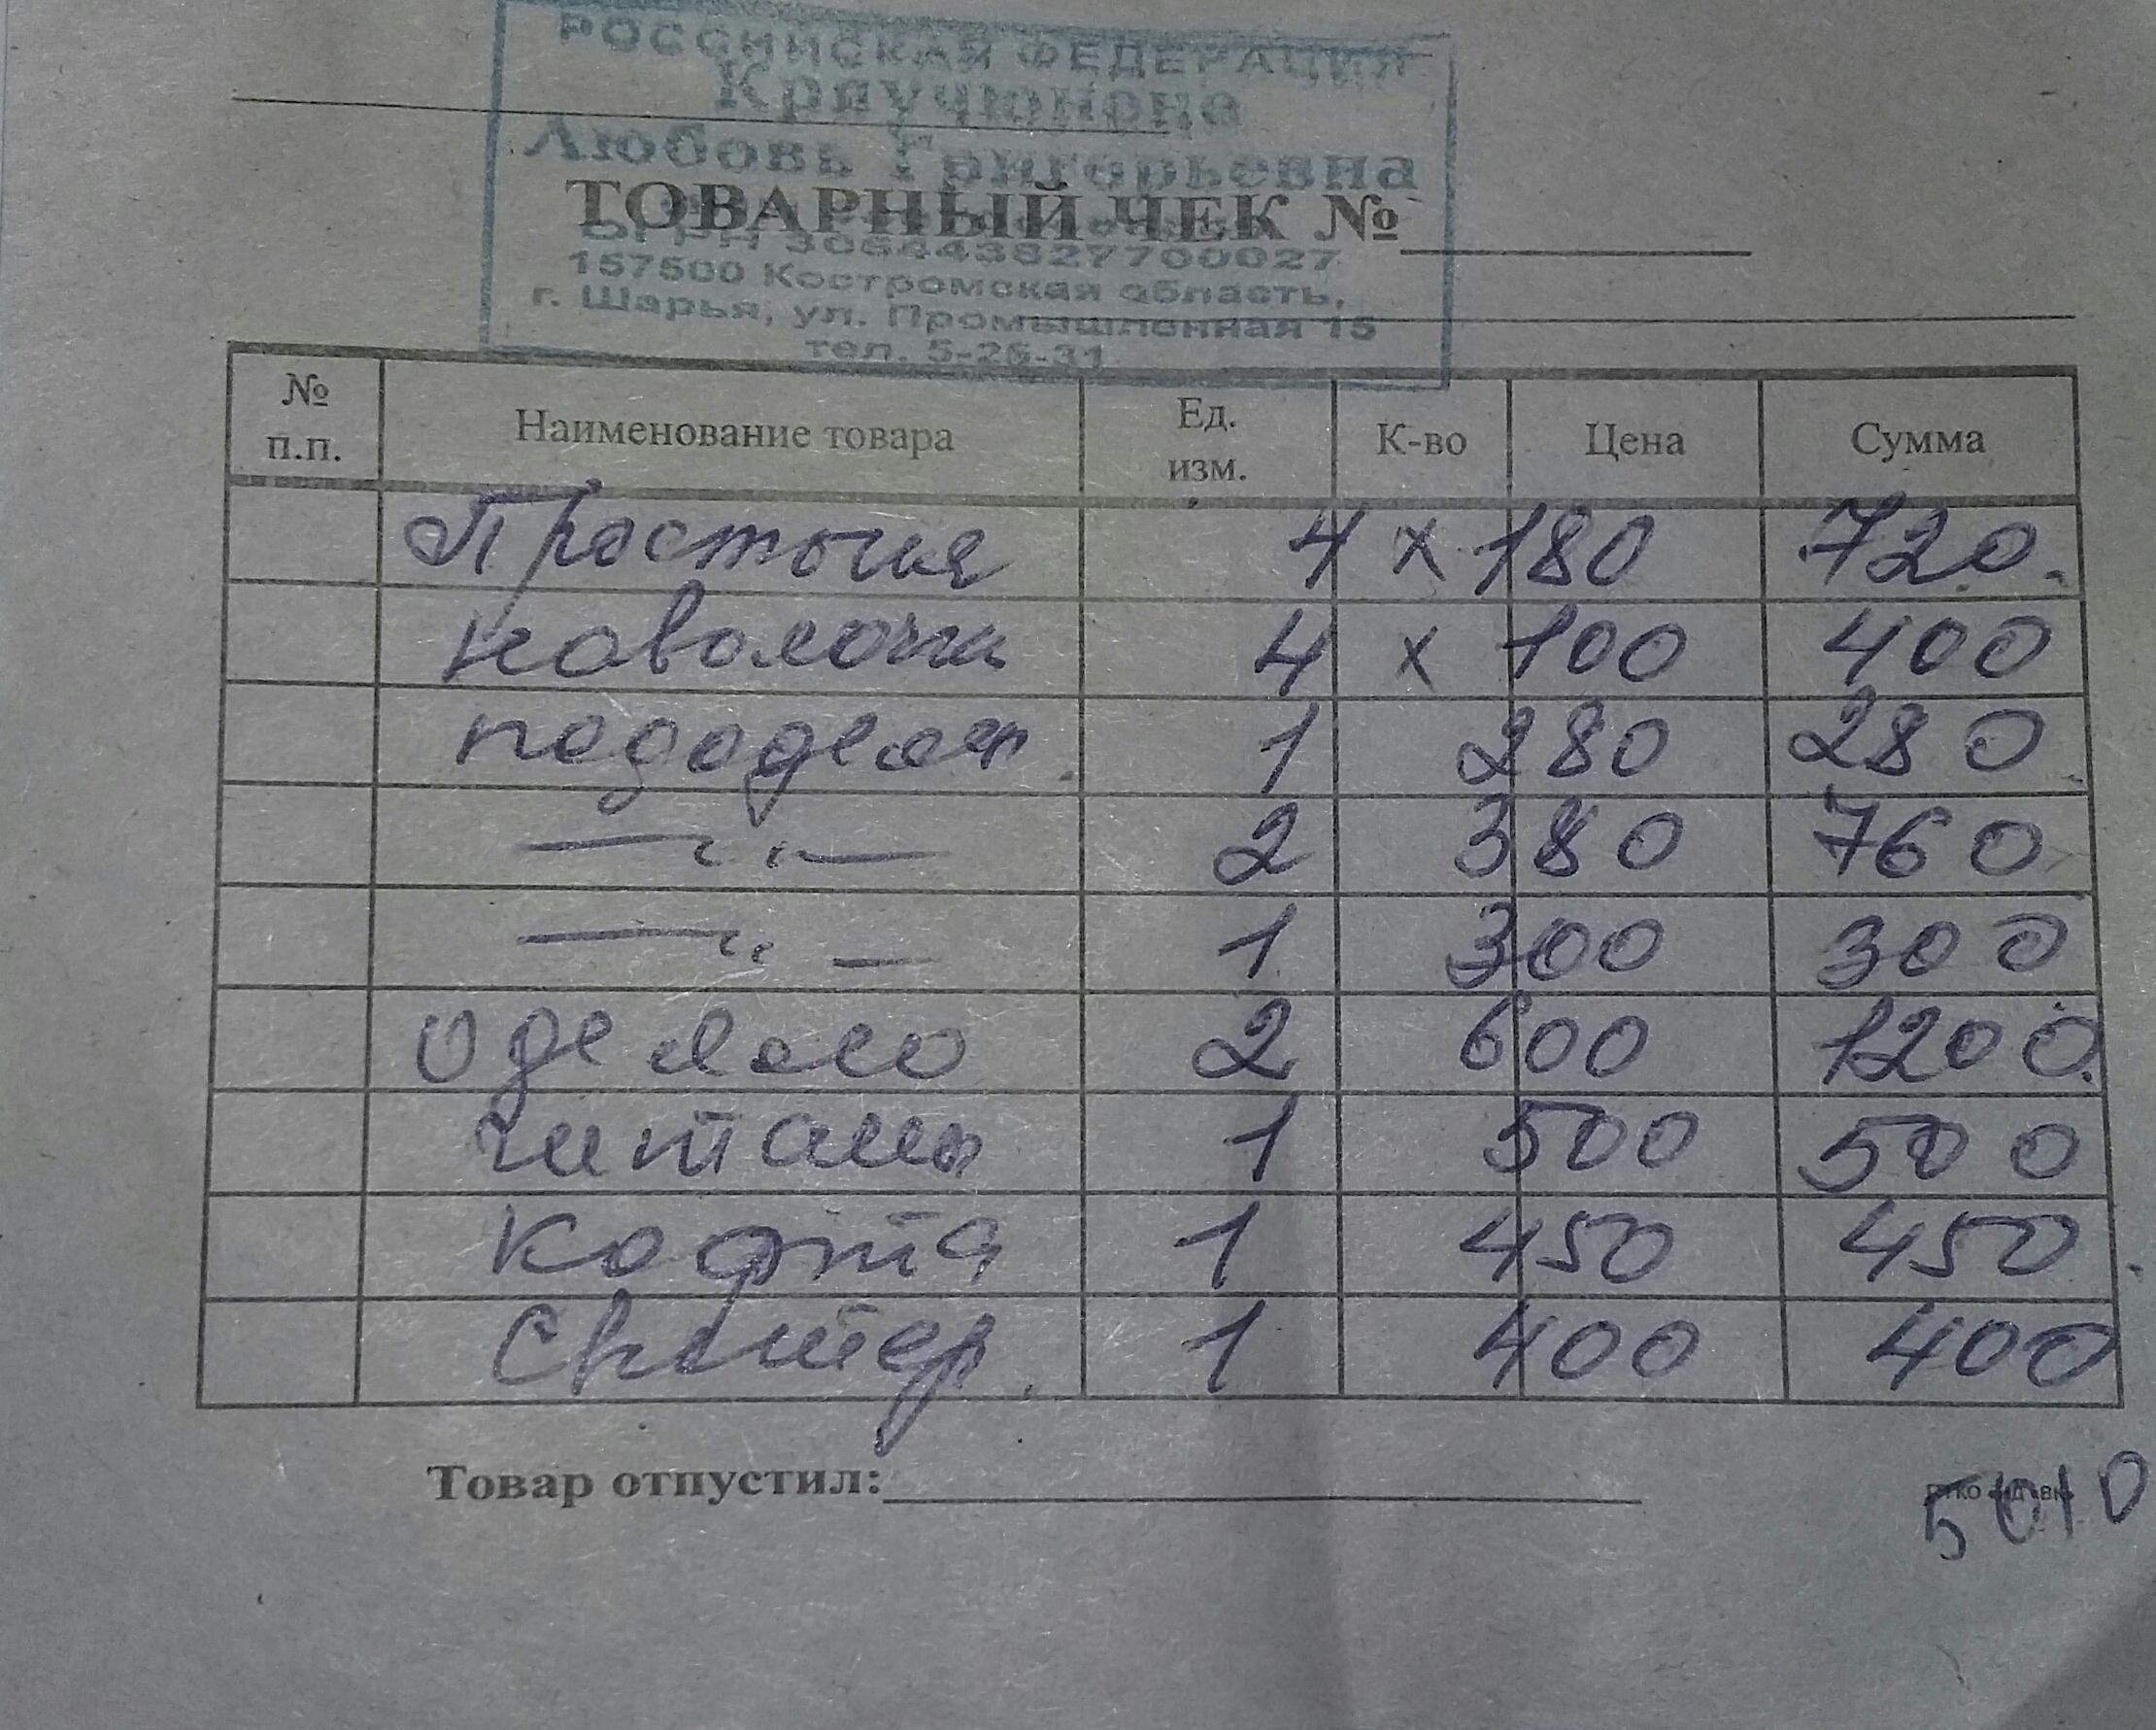 РОССИЙСКАЯ ФЕДЕРАЦИЯ
Любовь Григорьевна
ТОВАРНЫЙ ЧЕК №
ОГРН 306443827700027
157500 Костромская область,
г. Шарья, ул. Промышленная 15
тел. 5-26-31
№ п.п. Наименование товара Ед. изм. К-во Цена Сумма
Простыня 4 х 180 720.
наволочки 4 х 100 400
пододеял. 1 280 280
—〃— 2 380 760
—〃— 1 300 300
одеяло 2 600 1200.
штаны 1 500 500
кофта 1 450 450
свитер. 1 400 400
Товар отпустил:
5010